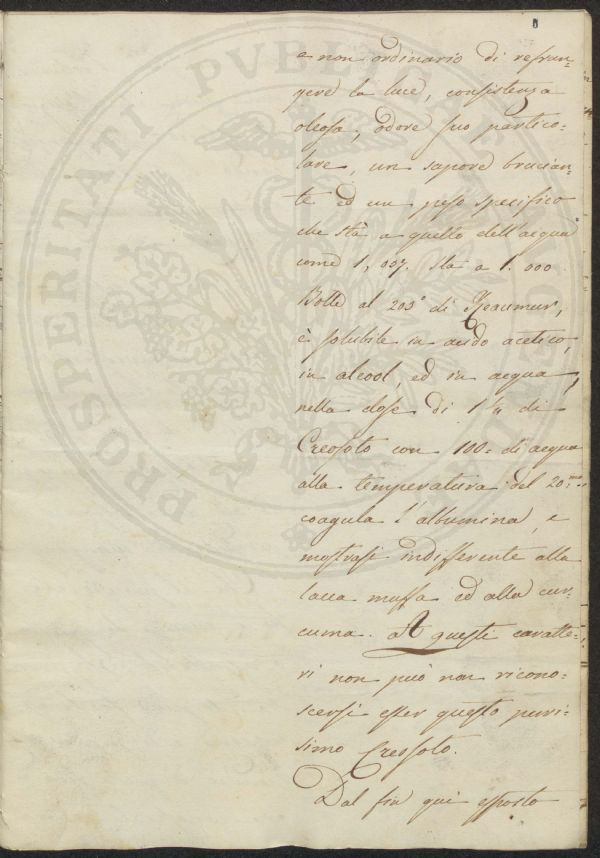 e non ordinario di refran=
gere la luce, consistenza
oleosa, odore suo partico=
lare, un sapore brucian=
te ed un peso specifico
che stà a quello dell'acqua
come 1,037. sta a 1.000
Bolle al 203° di Reaumur,
è solubile in acido acetico,
in alcool, ed in acqua,
nella dose di 1 1/4 di
Creosoto con 100= di acqua
alla temperatura del 20=mo
coagula l'albumina, e
mostrasi indifferente alla
lacca muffa ed alla cur=
cuma. A questi caratte=
ri non può non ricono=
scersi esser questo puris=
simo Creosoto.
Dal fin quì esposto
PROSPERITATI PUBLICAE